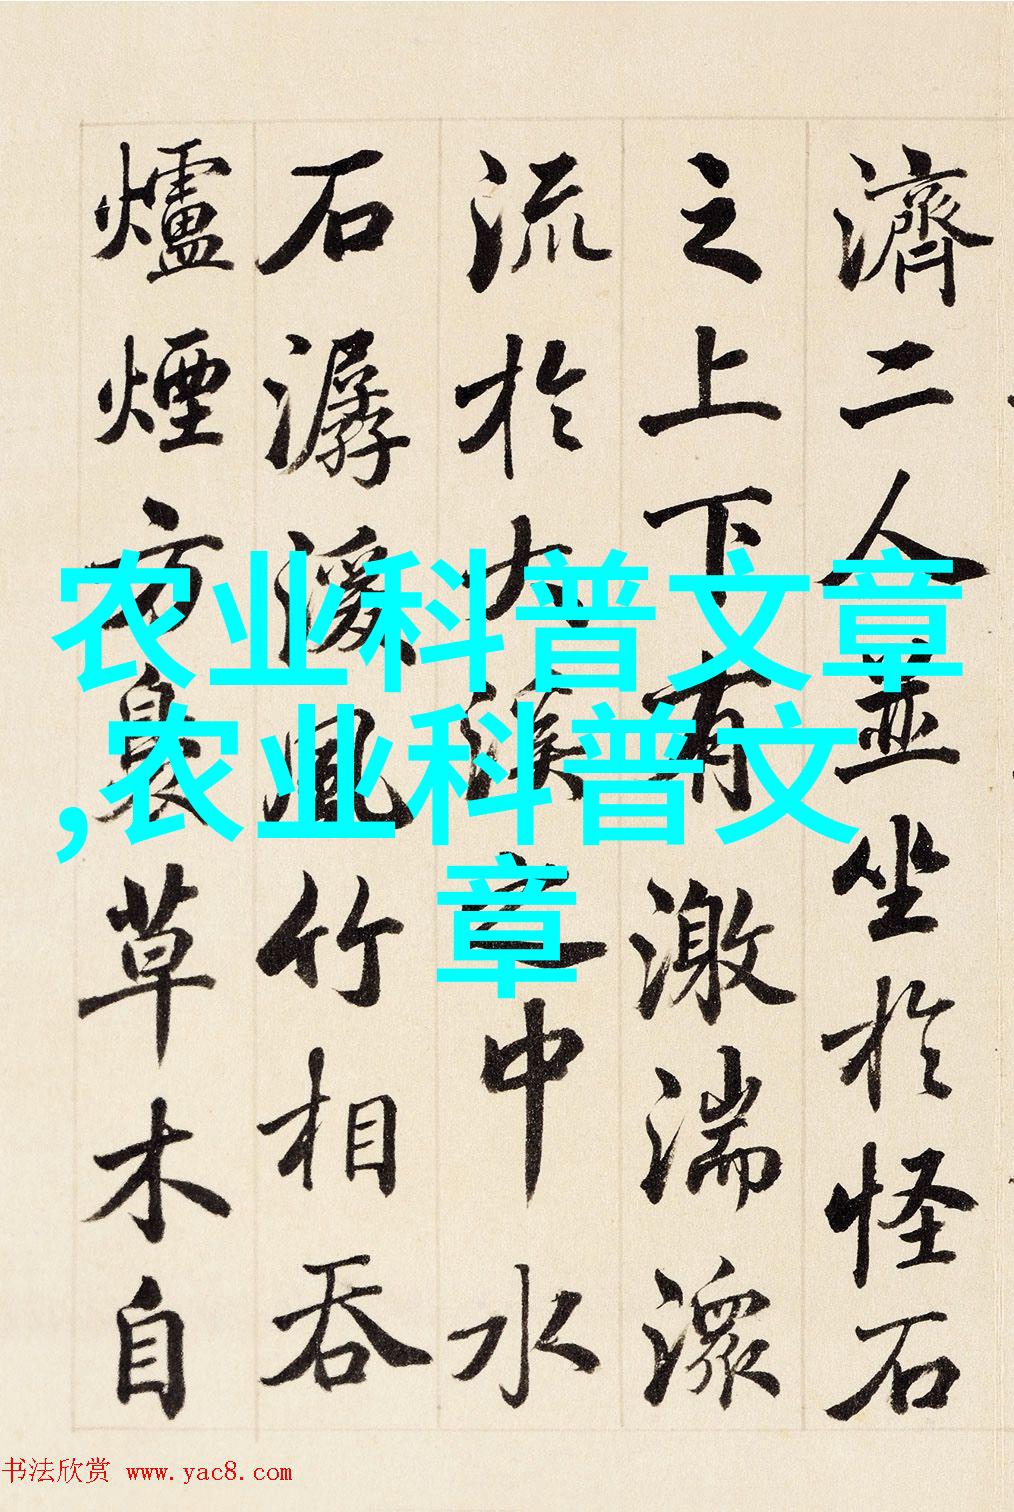 濟二人並坐於怪石
之上下有激湍潀
流於大溪之中水
石潺湲風竹相吞
爐煙方裊草木自
农业科普文章
,农业科普文
章
书法欣赏 www.yac8.com